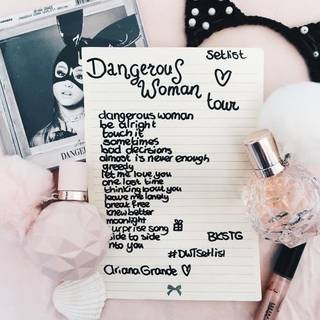 Setlist
Dangerous
Woman
tour
dangerous woman
be alright
touch it
sometimes
bad decisions
almost is never enough
greedy
let me love you
one last time
thinking bout you
leave me lonely
break free
knew better
moonlight
surprise song
side to side
into you
BKSTG
#DWTsetlist
Ariana Grande